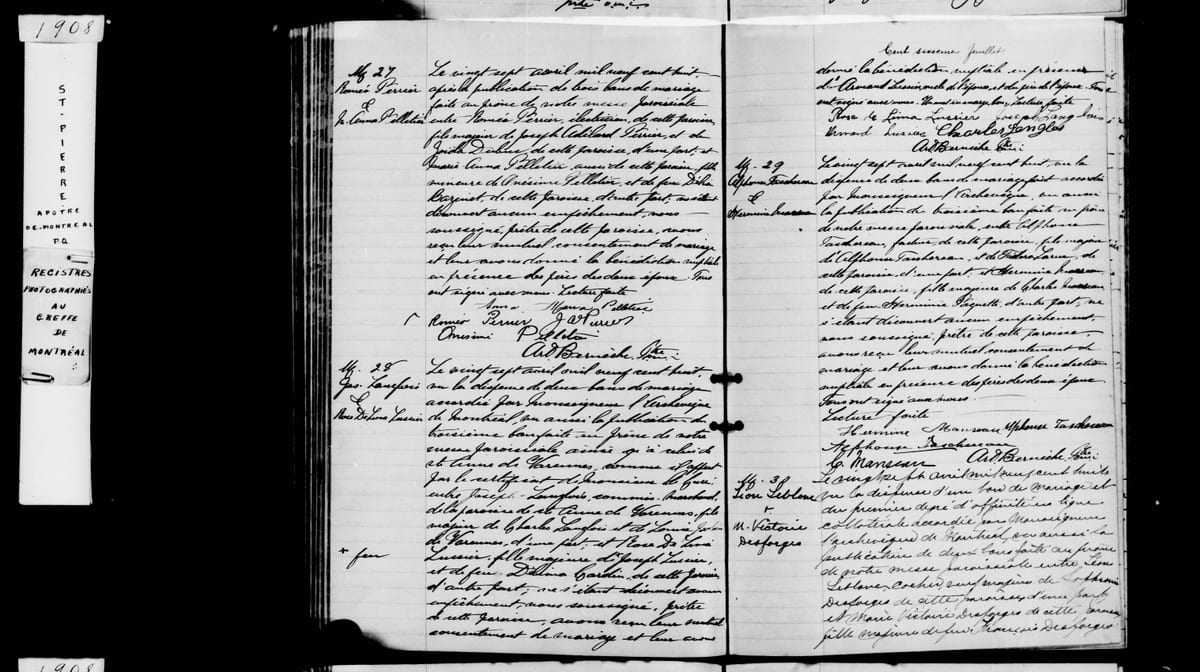 1908
ST-PIERRE
APOTRE
DE-MONTREAL
P.Q
REGISTRES
PHOTOGRAPHIÉS
AU
GREFFE
DE
MONTRÉAL
M. 27
Roméo Perrier
&
M. Anna Pelletier
Le vingt sept avril mil neuf cent huit,
après la publication de trois bans de mariage
faite au prône de notre messe paroissiale
entre Roméo Perrier, de cette paroisse,
fils majeur de Joseph Adélard Perrier, et de
de cette paroisse, d'une part, et
Marie Anna Pelletier, aussi de cette paroisse, fille
mineure de Onésime Pelletier, et de feu
de cette paroisse, d'autre part,
découvert aucun empêchement, nous
soussigné, prêtre de cette paroisse, avons
reçu leur mutuel consentement de mariage
et leur avons donné la bénédiction nuptiale
en présence des pères des deux époux. Tous
ont signé avec nous. Lecture faite
Anna Maria Pelletier
Roméo Perrier
Onésime Pelletier
Ard Bernèche Ptre
M. 28
Jos. Langlois
&
Rose De Lima Lussier
Le vingt sept avril mil neuf cent huit,
vu la dispense de deux bans de mariage
accordée par Monseigneur l'Archevêque
de Montréal, vu aussi la publication du
troisième ban faite au prône de notre
messe paroissiale ainsi qu'à celui de
Ste Anne de Varennes, comme il appert
par le certificat de Monsieur le Curé
entre Joseph Langlois, commis marchand,
de la paroisse de Ste Anne de Varennes, fils
majeur de Charles Langlois et de Louise
de Varennes, d'une part, et Rose De Lima
+ feu
Lussier, fille majeure d'Joseph Lussier,
et de feu Délima Cardin, de cette paroisse,
d'autre part, ne s'étant découvert aucun
empêchement, nous soussigné, prêtre
de cette paroisse, avons reçu leur mutuel
consentement de mariage et leur avons
Cent sixième feuillet
donné la bénédiction nuptiale en présence
d'Armand Lussier, oncle de l'épouse, et du père de l'époux. Tous
ont signé avec nous. Lecture faite
Rose de Lima Lussier Joseph Langlois
Lussier Charles Langlois
Ard Bernèche Ptre
M. 29
Alphonse Taschereau
&
Herminie Manseau
Le vingt sept avril mil neuf cent huit, vu la
dispense de deux bans de mariage accordée
par Monseigneur l'Archevêque, vu aussi
la publication du troisième ban faite au prône
de notre messe paroissiale, entre Alphonse
Taschereau, facteur, de cette paroisse, fils majeur
d'Alphonse Taschereau, et de de
cette paroisse d'une part, et Herminie Manseau
de cette paroisse, fille majeure de Charles Manseau
et de feu Herminie Paquette, d'autre part, ne
s'étant découvert aucun empêchement,
nous soussigné, prêtre de cette paroisse,
avons reçu leur mutuel consentement de
mariage et leur avons donné la bénédiction
nuptiale en présence des pères des deux époux
Tous ont signé avec nous.
Lecture faite
Hermine Manseau Alphonse Taschereau
Alphonse Taschereau
C. Manseau Ard Bernèche Ptre
M. 30
Léon Leblanc
+
M. Victoire
Desforges
Le vingt sept avril mil neuf cent huit
vu la dispense d'un ban de mariage et
du premier degré d'affinité en ligne
collatérale accordée par Monseigneur
l'archevêque de Montréal, vu aussi la
publication de deux bans faite au prône
de notre messe paroissiale entre Léon
Leblanc, cocher, veuf majeur de Sophronie
Desforges de cette paroisse, d'une part
et Marie Victoire Desforges de cette paroisse
fille majeure de feu François Desforges
1908